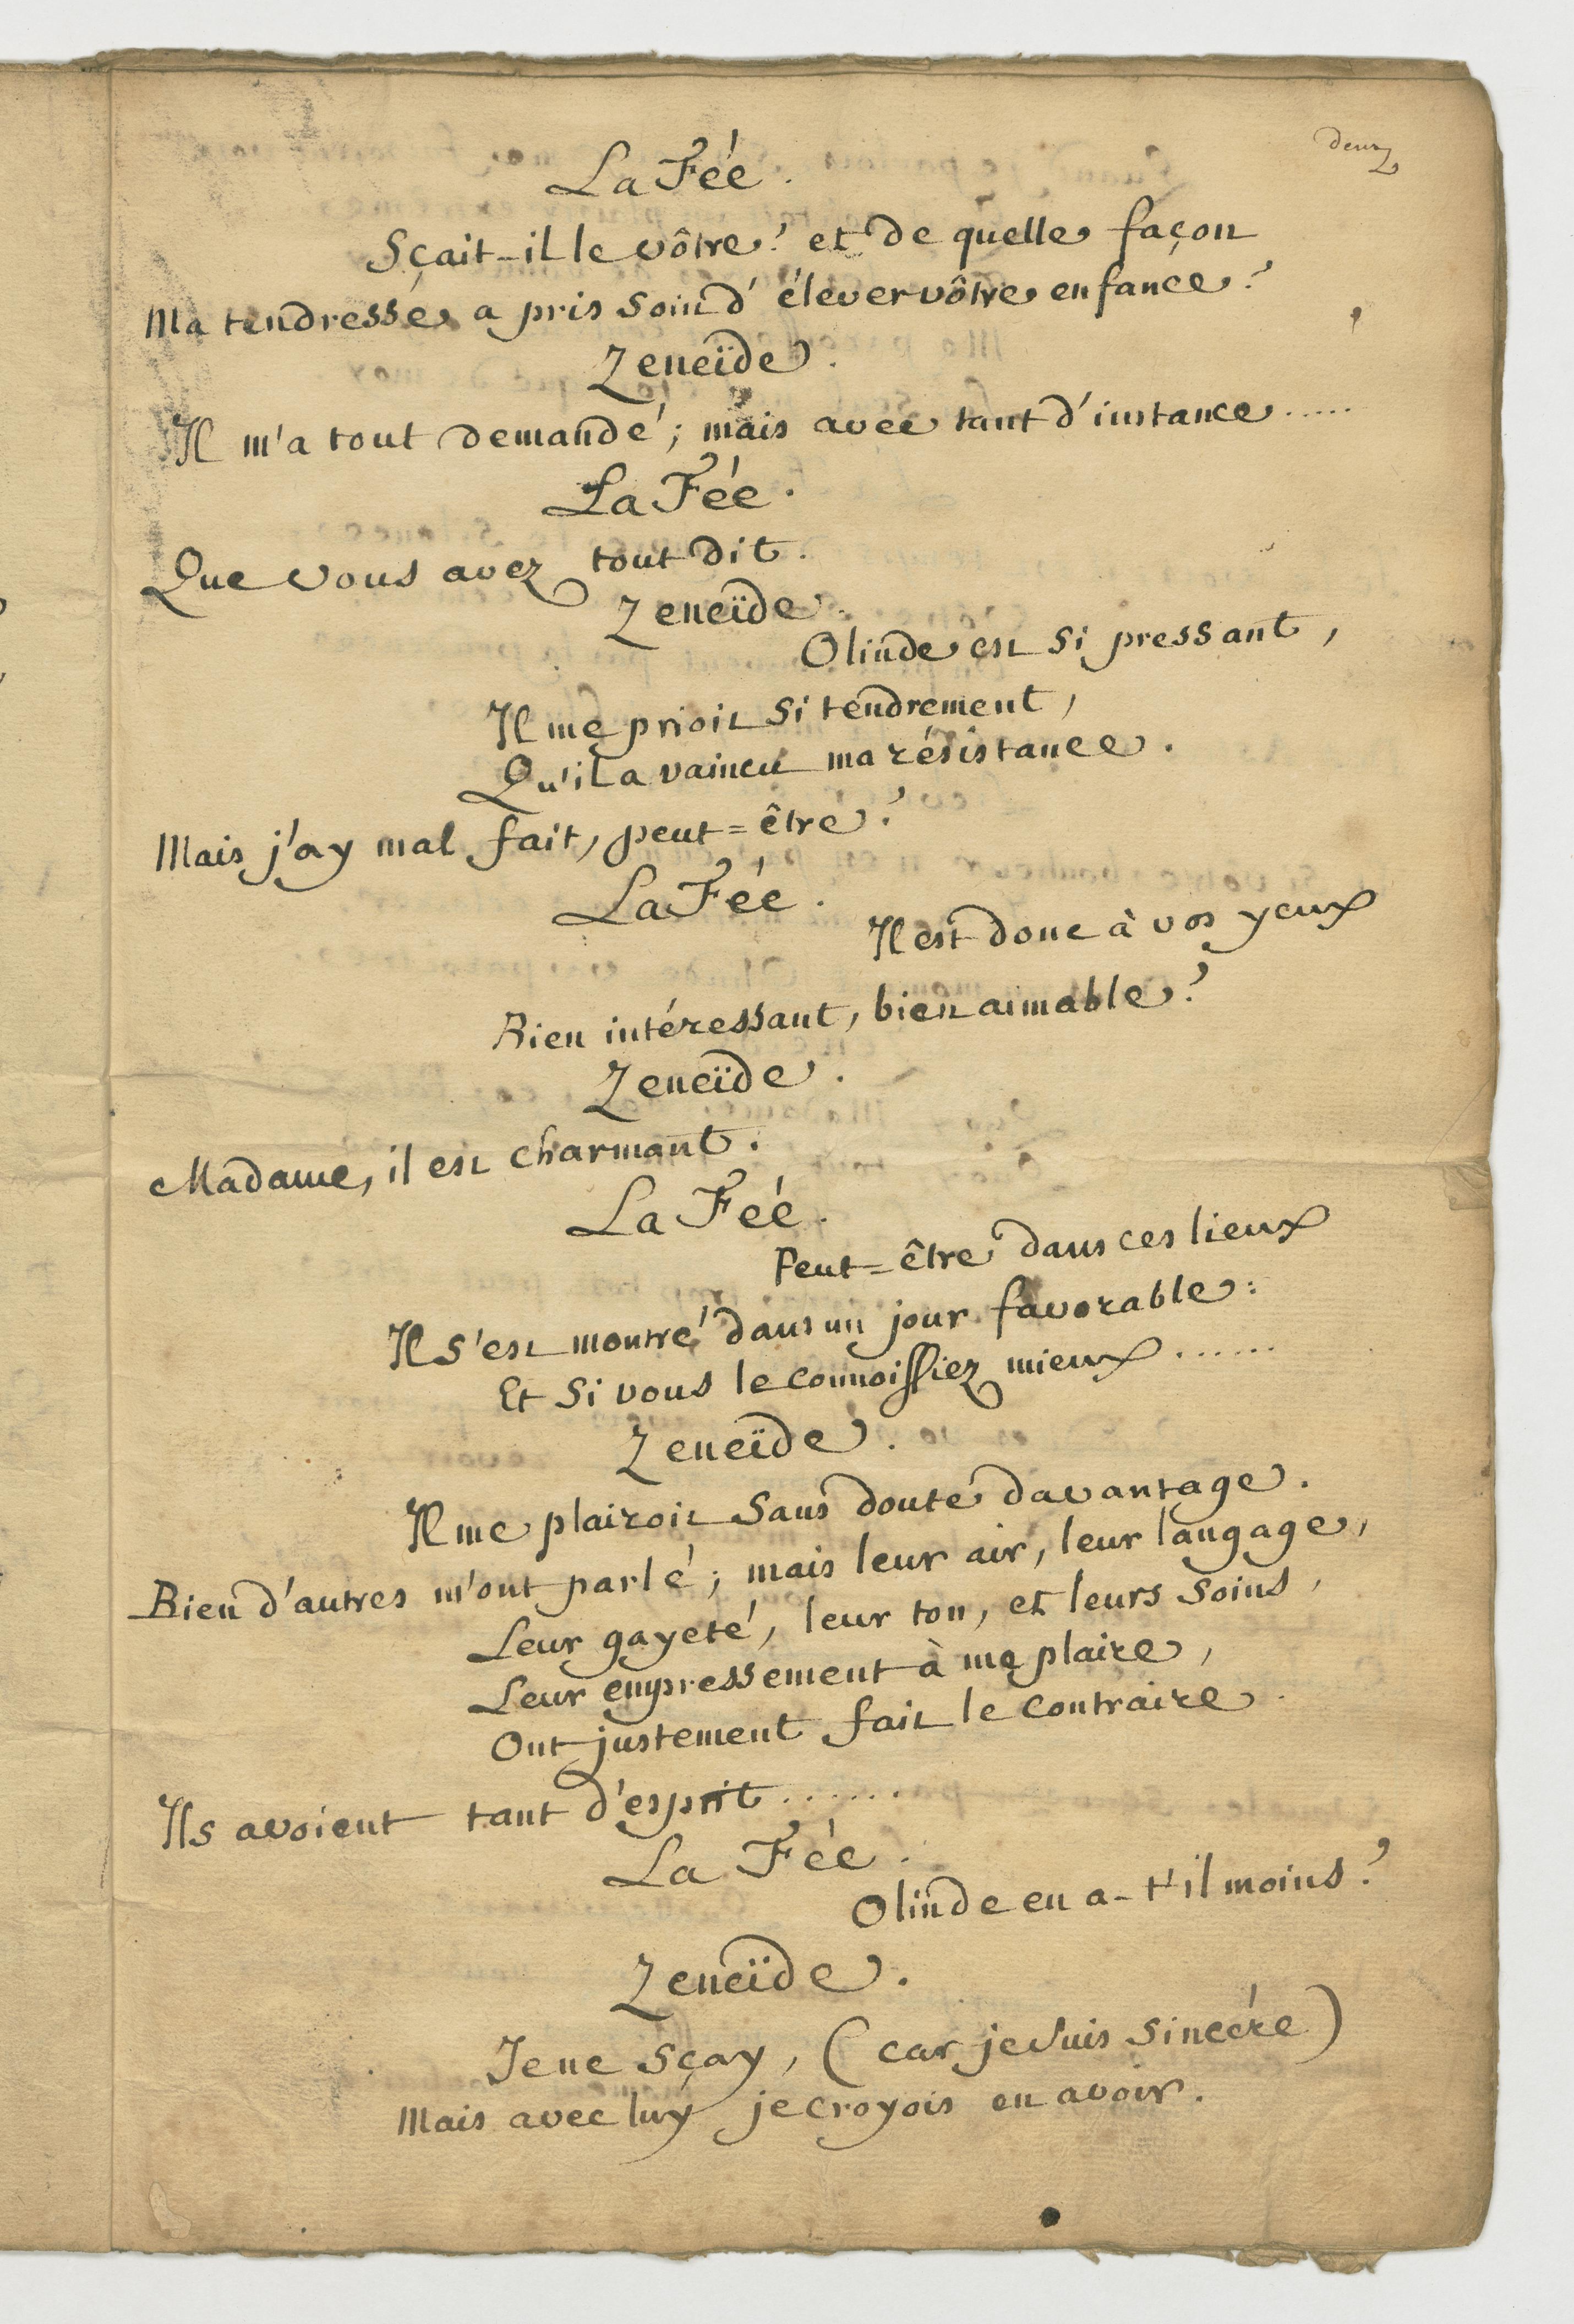 deux
La Fée.
Sçait-il le vôtre? et de quelle façon
Ma tendresse a pris soin d'élever vôtre enfance?
Zeneïde.
Il m'a tout demandé; mais avec tant d'instance.....
La Fée.
Que vous avez tout dit.
Zeneïde.
Olinde est si pressant,
Il me prioit si tendrement,
Qu'il a vaincu ma résistance.
Mais j'ay mal fait, peut=être?
La Fée.
Il est donc à vos yeux
Bien intéressant, bien aimable?
Zeneïde.
Madame, il est charmant.
La Fée.
Peut=être dans ces lieux
Il s'est montré dans un jour favorable:
Et si vous le connoissiez mieux......
Zeneïde.
Il me plairoit sans doute davantage.
Bien d'autres m'ont parlé; mais leur air, leur langage,
Leur gayeté, leur ton, et leurs soins,
Leur empressement à me plaire,
Ont justement fait le contraire.
Ils avoient tant d'esprit......
La Fée.
Olinde en a-t'il moins?
Zeneïde.
Je ne sçay, (car je suis sincére)
Mais avec luy je croyois en avoir.